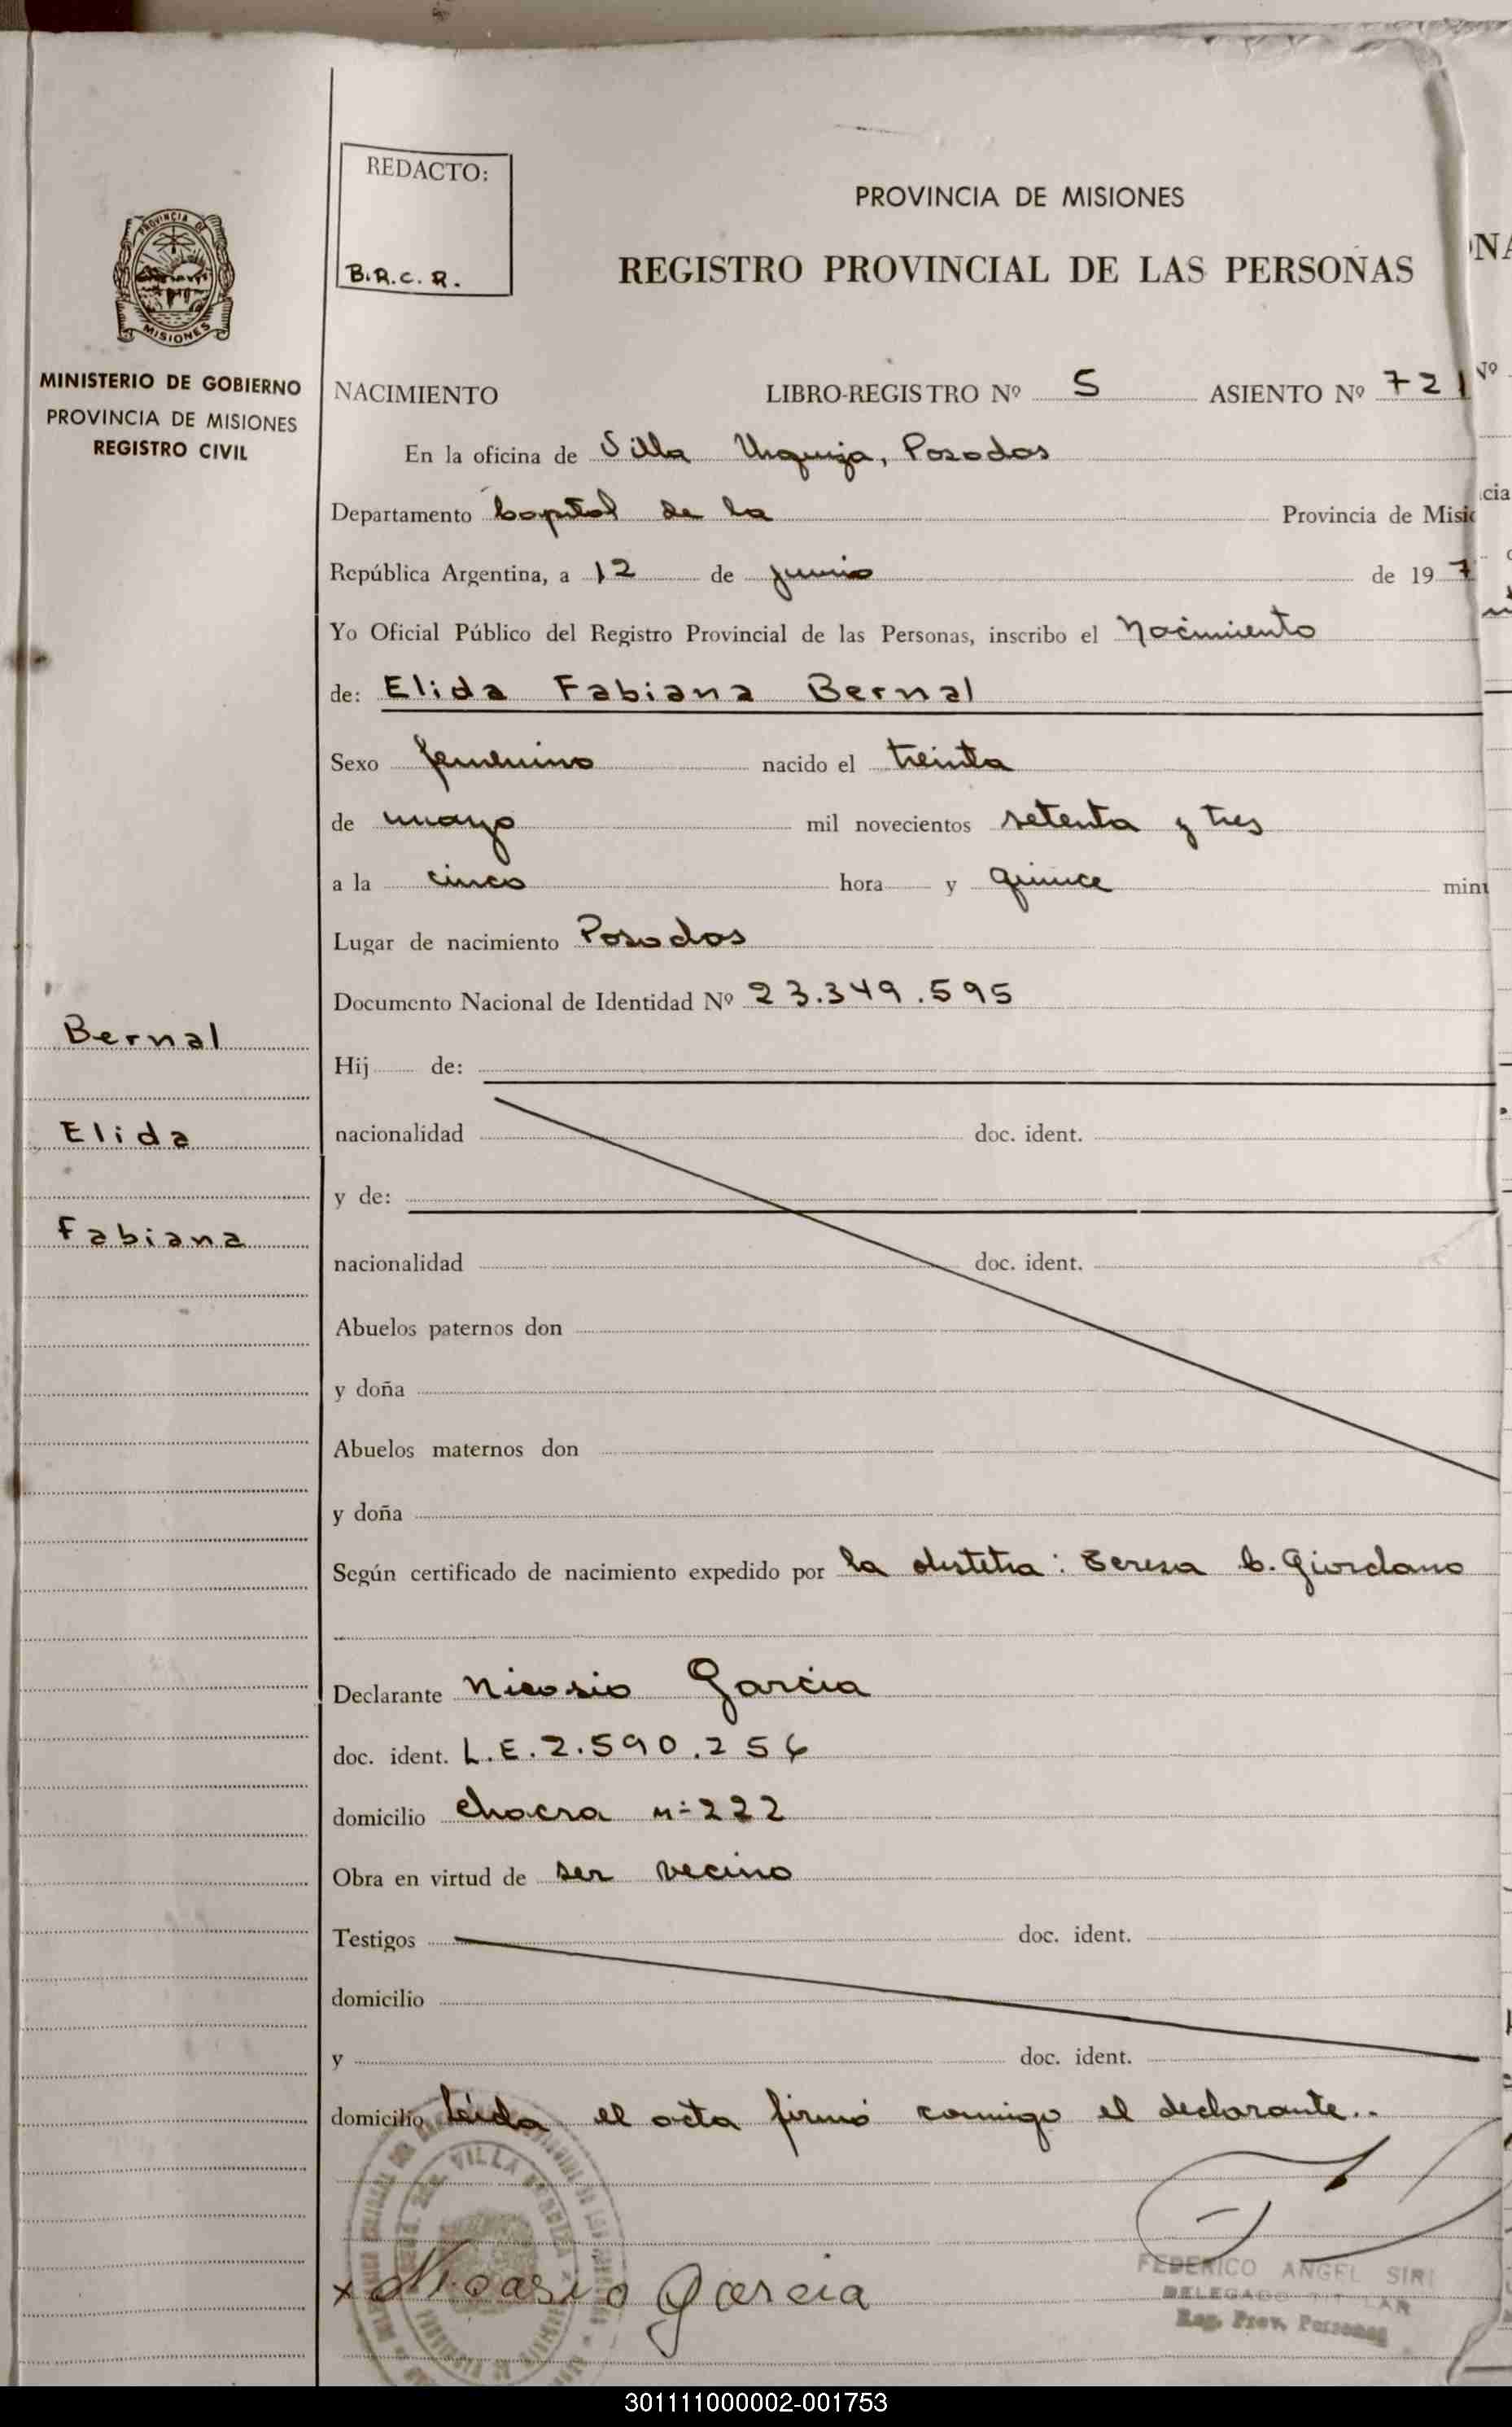 REDACTO:
B.R.C.R.
PROVINCIA DE MISIONES
REGISTRO PROVINCIAL DE LAS PERSONAS
PROVINCIA DE
MISIONES
MINISTERIO DE GOBIERNO
PROVINCIA DE MISIONES
REGISTRO CIVIL
NACIMIENTO LIBRO-REGISTRO Nº 5 ASIENTO Nº 721
En la oficina de Villa Urquiza, Posadas
Departamento Capital de la Provincia de Misio
República Argentina, a 12 de junio de 197
Yo Oficial Público del Registro Provincial de las Personas, inscribo el Nacimiento
de: Elida Fabiana Bernal
Sexo femenino nacido el treinta
de mayo mil novecientos setenta y tres
a la cinco hora y quince minu
Lugar de nacimiento Posadas
Documento Nacional de Identidad Nº 23.349.595
Bernal
Elida
Fabiana
Hij de:
nacionalidad doc. ident.
y de:
nacionalidad doc. ident.
Abuelos paternos don
y doña
Abuelos maternos don
y doña
Según certificado de nacimiento expedido por la obstetra: Teresa C. Giordano
Declarante Nicasio Garcia
doc. ident. L.E. 2.590.256
domicilio chacra nº 222
Obra en virtud de ser vecino
Testigos doc. ident.
domicilio
y doc. ident.
domicilio Leída el acta firmó conmigo el declarante..
VILLA URQUIZA
x Nicasio Garcia
FEDERICO ANGEL SIRI
DELEGADO TITULAR
Reg. Prov. Personas
301111000002-001753